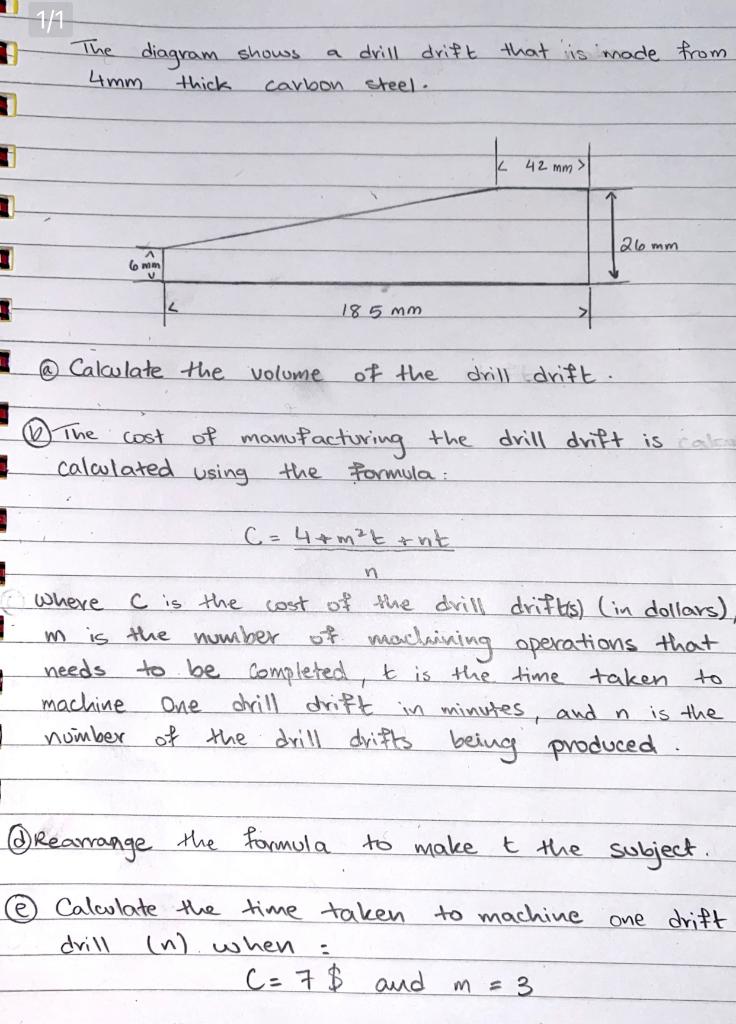 1/1
The diagram shows a drill drift that is made from
4mm thick carbon steel.
42 mm
26 mm
6 mm
185 mm
(a) Calculate the volume of the drill drift.
(b) The cost of manufacturing the drill drift is calcu
calculated using the formula:
C = 4 + m²t + nt
n
where C is the cost of the drill drift(s) (in dollars),
m is the number of machining operations that
needs to be completed, t is the time taken to
machine One drill drift in minutes, and n is the
number of the drill drifts being produced.
(d) Rearrange the formula to make t the subject.
(e) Calculate the time taken to machine one drift
drill (n) when :
C = 7 $ and m = 3